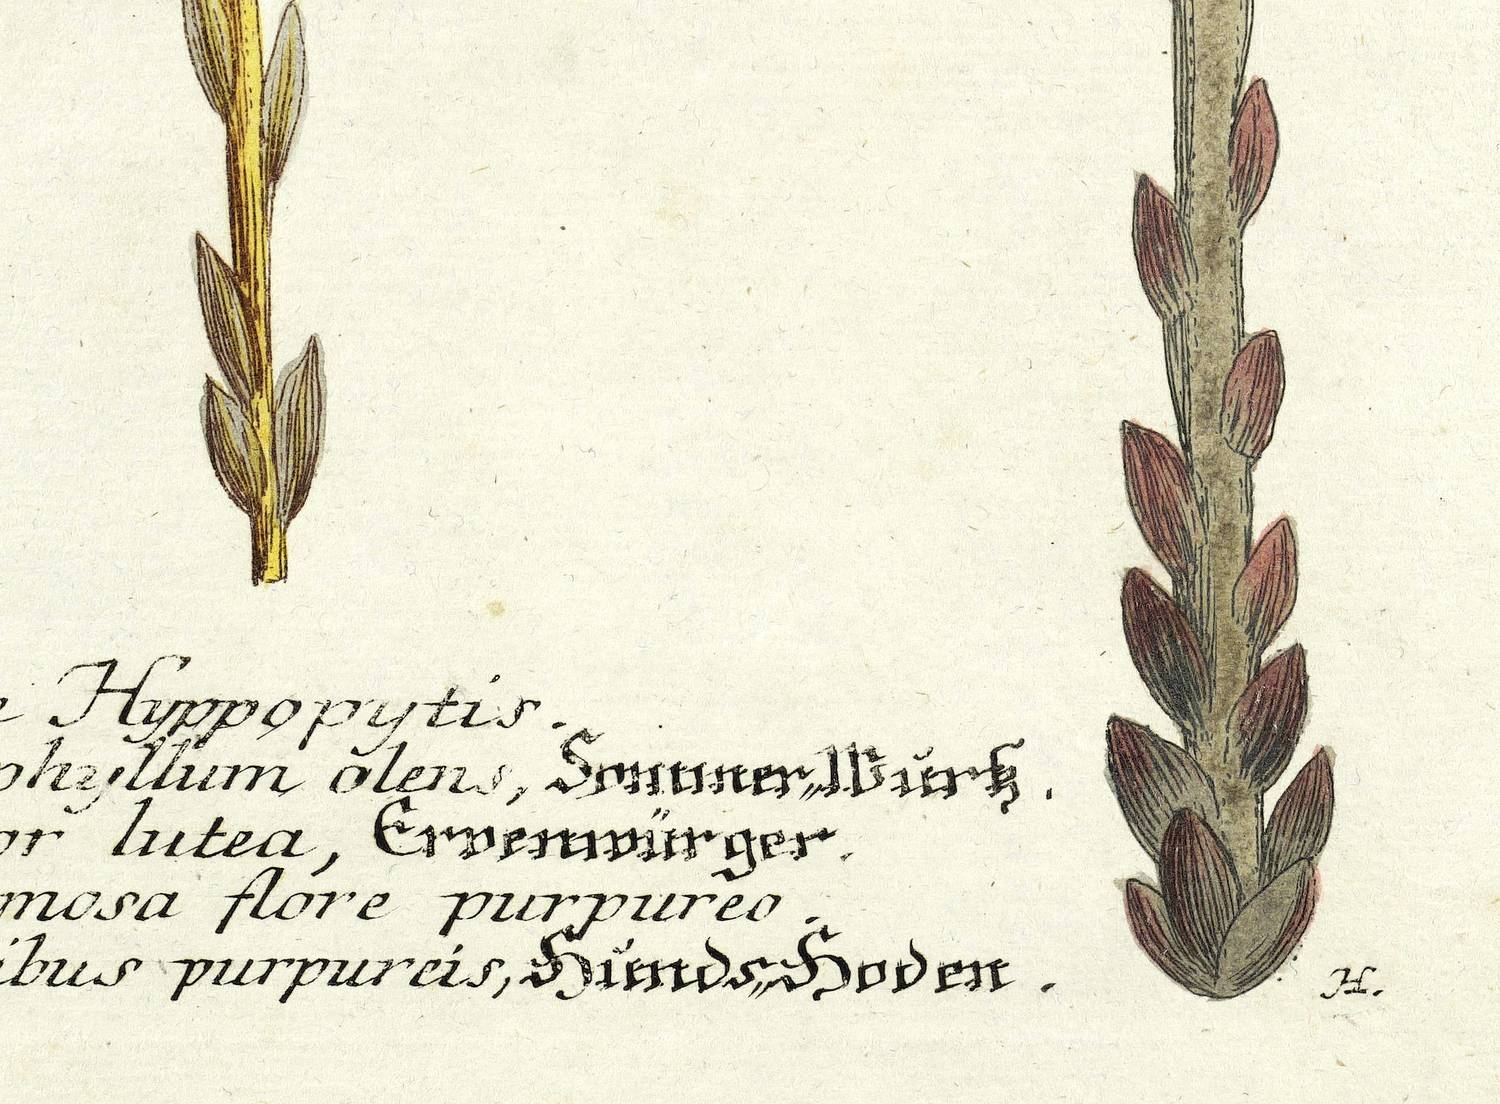 e Hyppopytis.
phyllum olens, Sommer„Wurtz.
or lutea, Ervenwürger.
mosa flore purpureo.
ibus purpureis, Hunds„Hoden.
H.